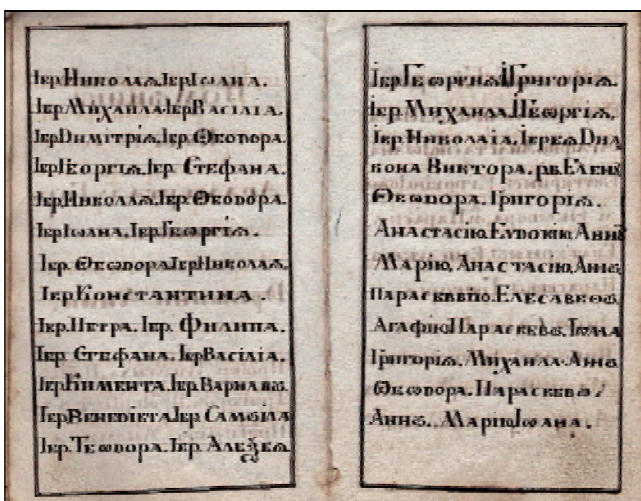 Іер Николаѧ. Іер Іѡана.
Іер Михаила. Іер Васілїа.
Іер Димитріѧ. Іер Ѳеодора.
Іер Георгіѧ. Іер Стефана.
Іер Николаѧ. Іер Ѳеодора.
Іер Іѡана. Іер Геѡргіѧ.
Іер. Ѳеѡдора Іер Николаѧ.
Іер Константина.
Іер. Петра. Іер. Филипа.
Іер. Стефана. Іер Васілїа.
Іер Климента. Іер. Варнавѡ.
Іер Венедіета Іер Самѡила
Іер. Теѡдора. Іер Алеѯеѧ
Іер. Геѡргиѧ Григоріѧ.
Іер Михаила. Геѡргіѧ.
Іер Николаіа. Іереѧ Диѧ
кона Виктора. рв. Елен
Ѳеѡдора. Григоріѧ.
Анастасію Евдокию Анн
Марію. Анастасію. Аннѡ
Параскевїю. Елесавеѳѡ.
Агафию Параскевѡ. Іѡма
Григоріѧ. Михаила. Аннѡ
Ѳеѡдора. Параскевѡ
Аннѡ. Марію Іѡана.